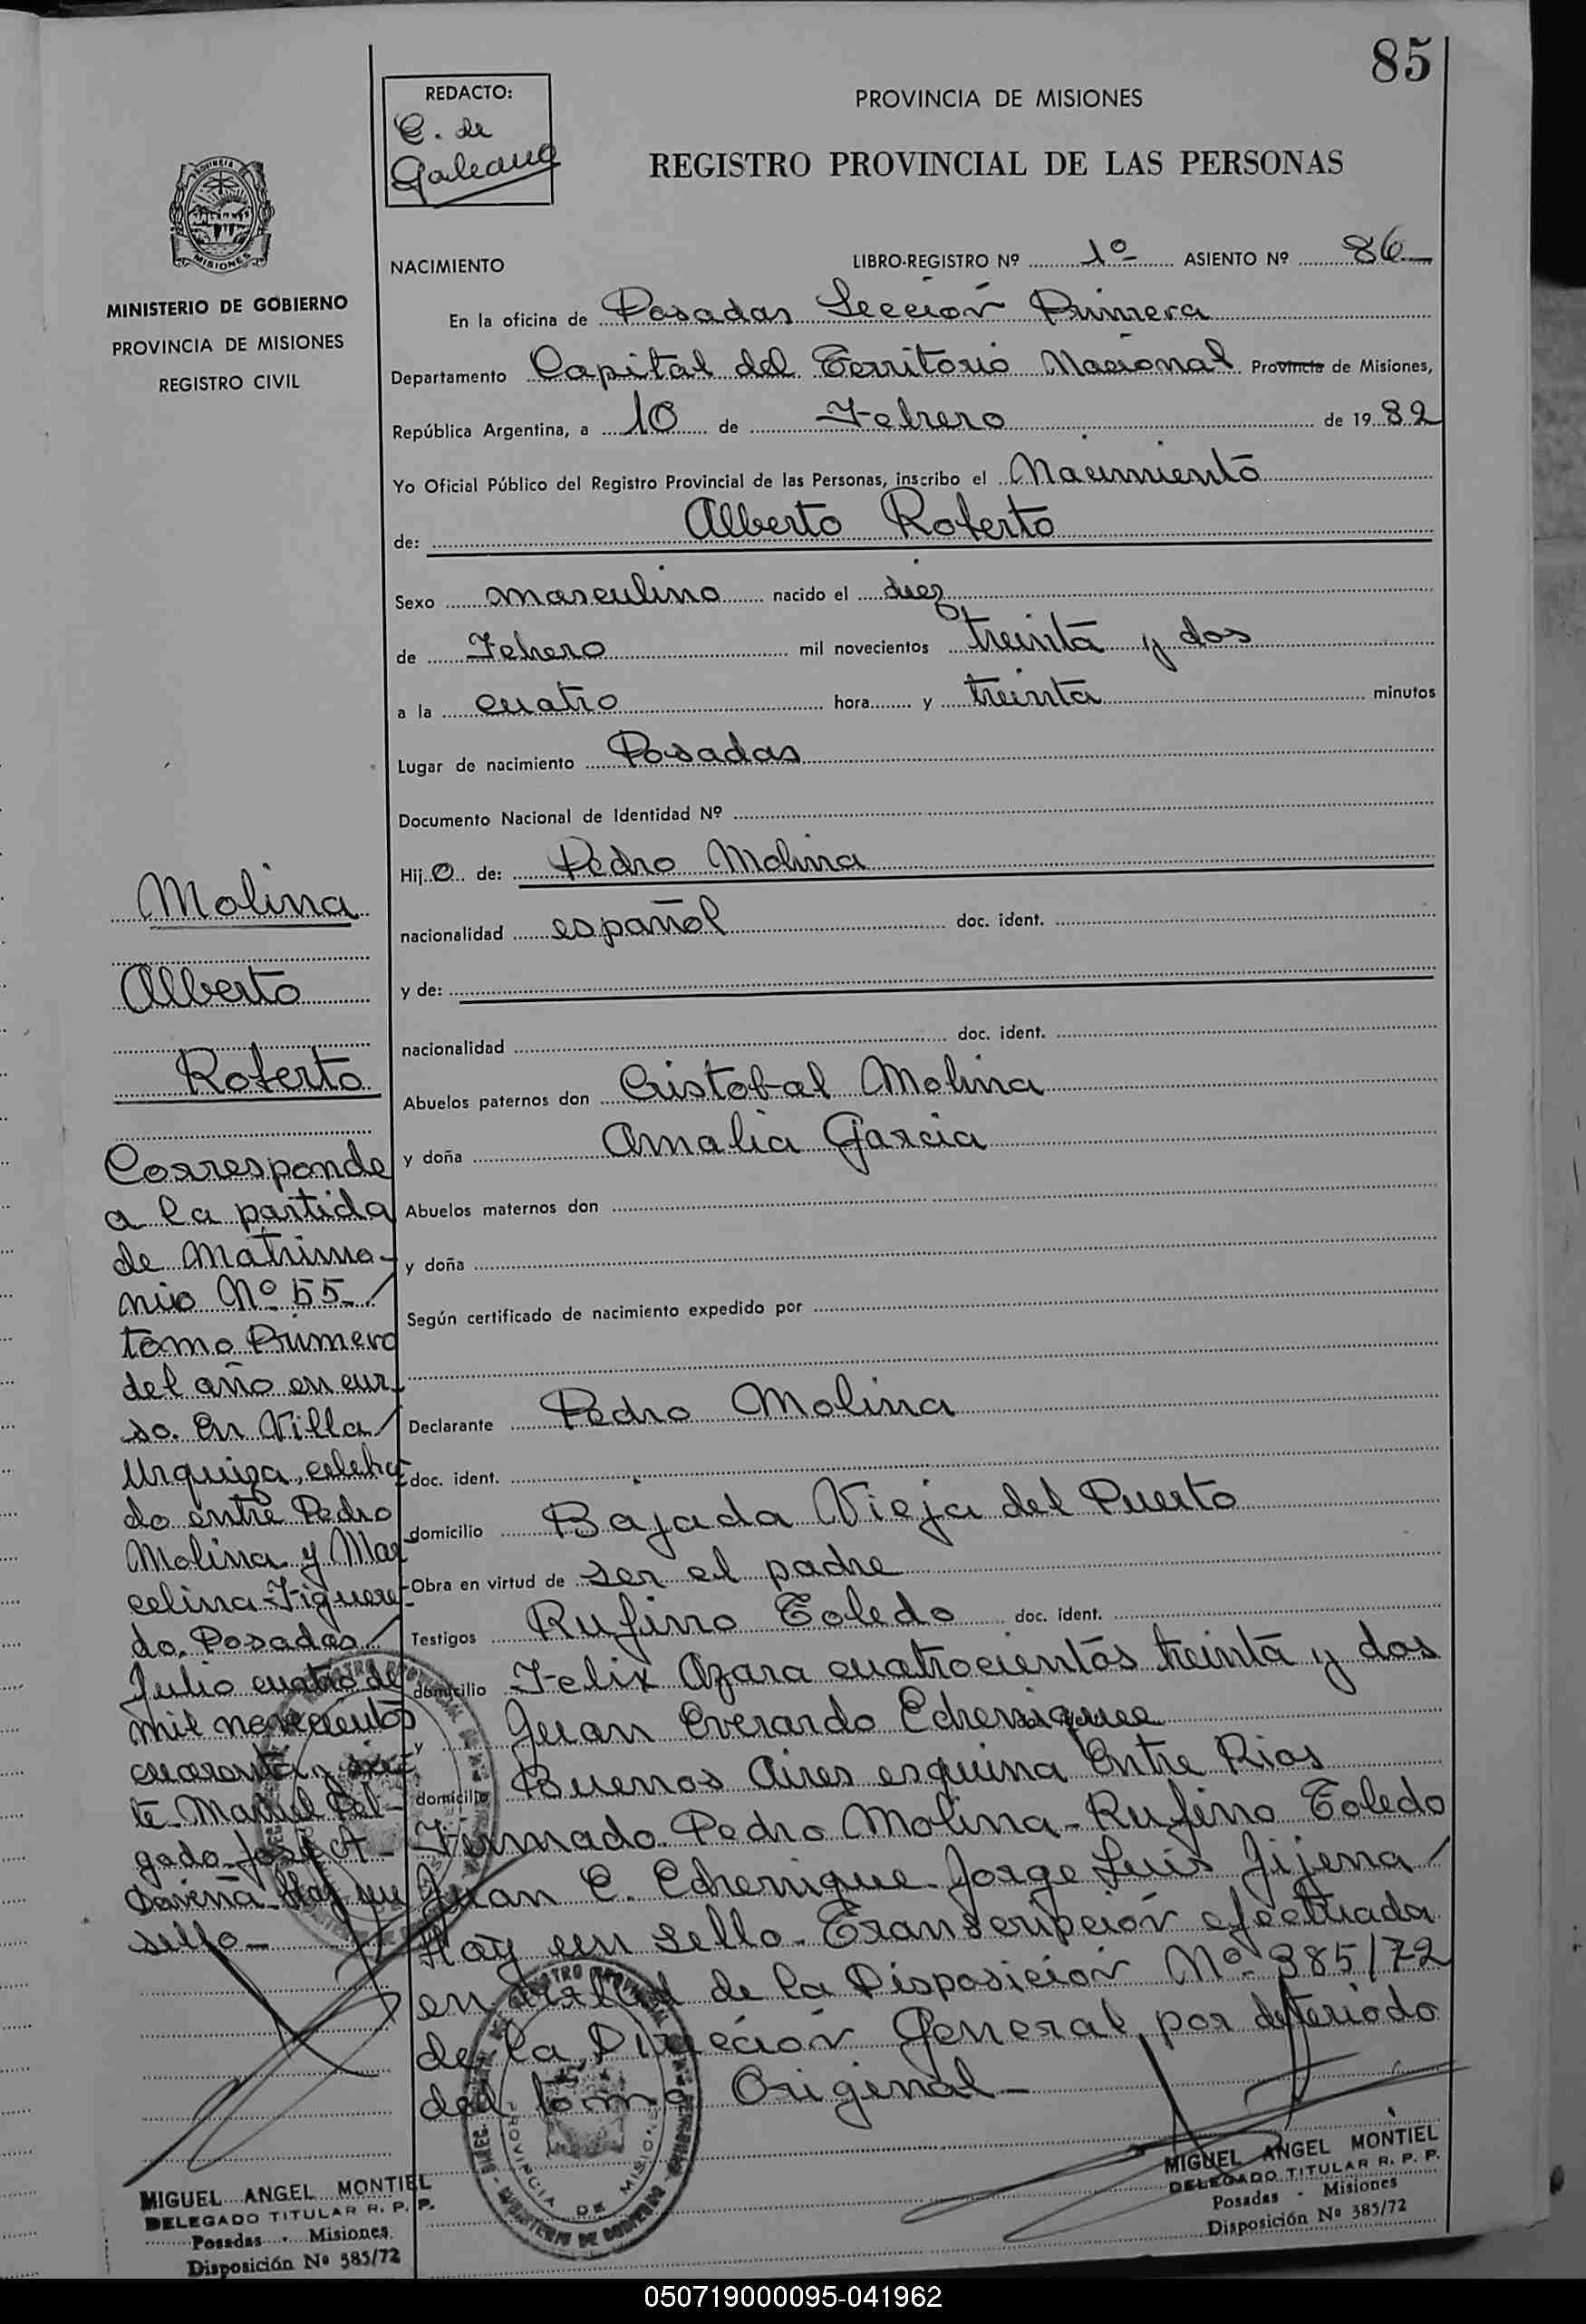 85
REDACTO:
C. de
Galeano
PROVINCIA DE MISIONES
REGISTRO PROVINCIAL DE LAS PERSONAS
MISIONES
MINISTERIO DE GOBIERNO
PROVINCIA DE MISIONES
REGISTRO CIVIL
NACIMIENTO LIBRO-REGISTRO Nº 1º ASIENTO Nº 86
En la oficina de Posadas Sección Primera
Departamento Capital del Territorio Nacional Provincia de Misiones,
República Argentina, a 10 de Febrero de 19 32
Yo Oficial Público del Registro Provincial de las Personas, inscribo el Nacimiento
de: Alberto Roberto
Sexo masculino nacido el diez
de Febrero mil novecientos treinta y dos
a la cuatro hora y treinta minutos
Lugar de nacimiento Posadas
Documento Nacional de Identidad Nº
Hij o de: Pedro Molina
nacionalidad español doc. ident.
y de:
nacionalidad doc. ident.
Abuelos paternos don Cristobal Molina
y doña Amalia Garcia
Abuelos maternos don
y doña
Según certificado de nacimiento expedido por
Declarante Pedro Molina
doc. ident.
domicilio Bajada Vieja del Puerto
Obra en virtud de ser el padre
Testigos Rufino Toledo doc. ident.
domicilio Felix Azara cuatrocientos treinta y dos
y Juan Everardo Echenique
domicilio Buenos Aires esquina Entre Rios
Firmado. Pedro Molina - Rufino Toledo
Juan E. Echenique. Jorge Luis Jijena
Hay un sello. Transcripción efectuada
en virtud de la Disposición Nº 385/72
de la Dirección General, por deteriodo
del tomo Original -
Molina
Alberto
Roberto
Corresponde
a la partida
de Matrimo-
nio Nº 55
tomo Primero
del año en cur-
so. En Villa
Urquiza, celebra
do entre Pedro
Molina y Mar
celina Figuere-
do. Posadas
Julio cuatro de
mil novecientos
cuarenta y sie
te. Manuel Del-
gado. José A-
Hay un
sello -
MIGUEL ANGEL MONTIEL
DELEGADO TITULAR R. P. P.
Posadas - Misiones
Disposición Nº 385/72
PROVINCIA DE MISIONES
MINISTERIO DE GOBIERNO
MIGUEL ANGEL MONTIEL
DELEGADO TITULAR R. P. P.
Posadas - Misiones
Disposición Nº 385/72
050719000095-041962